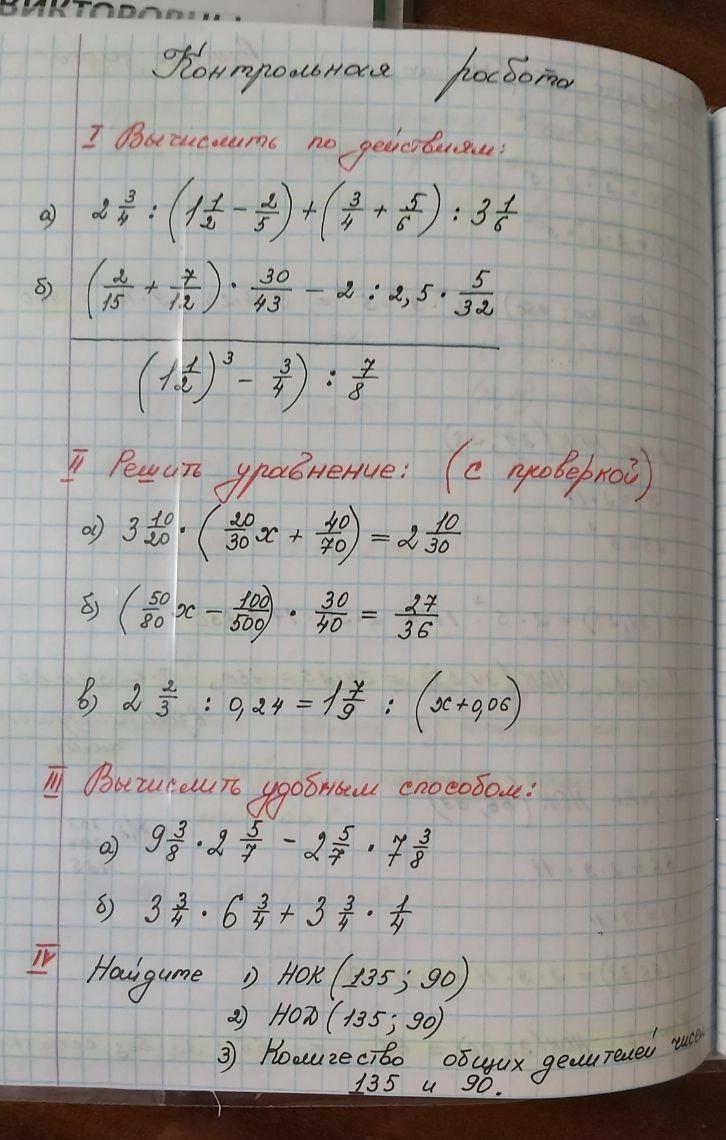 ВИКТОРОВНЫ
Контрольная работа
I Вычислить по действиям:
а) 2 3/4 : (1 1/2 - 2/5) + (3/4 + 5/6) : 3 1/6
б) (2/15 + 7/12) · 30/43 - 2 : 2,5 · 5/32
(1 1/2)³ - 3/4) : 7/8
II Решить уравнение: (с проверкой)
а) 3 10/20 · (20/30 x + 40/70) = 2 10/30
б) (50/80 x - 100/500) · 30/40 = 27/36
в) 2 2/3 : 0,24 = 1 7/9 : (x + 0,06)
III Вычислить удобным способом:
а) 9 3/8 · 2 5/7 - 2 5/7 · 7 3/8
б) 3 3/4 · 6 3/4 + 3 3/4 · 1/4
IV Найдите 1) НОК (135; 90)
2) НОД (135; 90)
3) Количество общих делителей чисел
135 и 90.